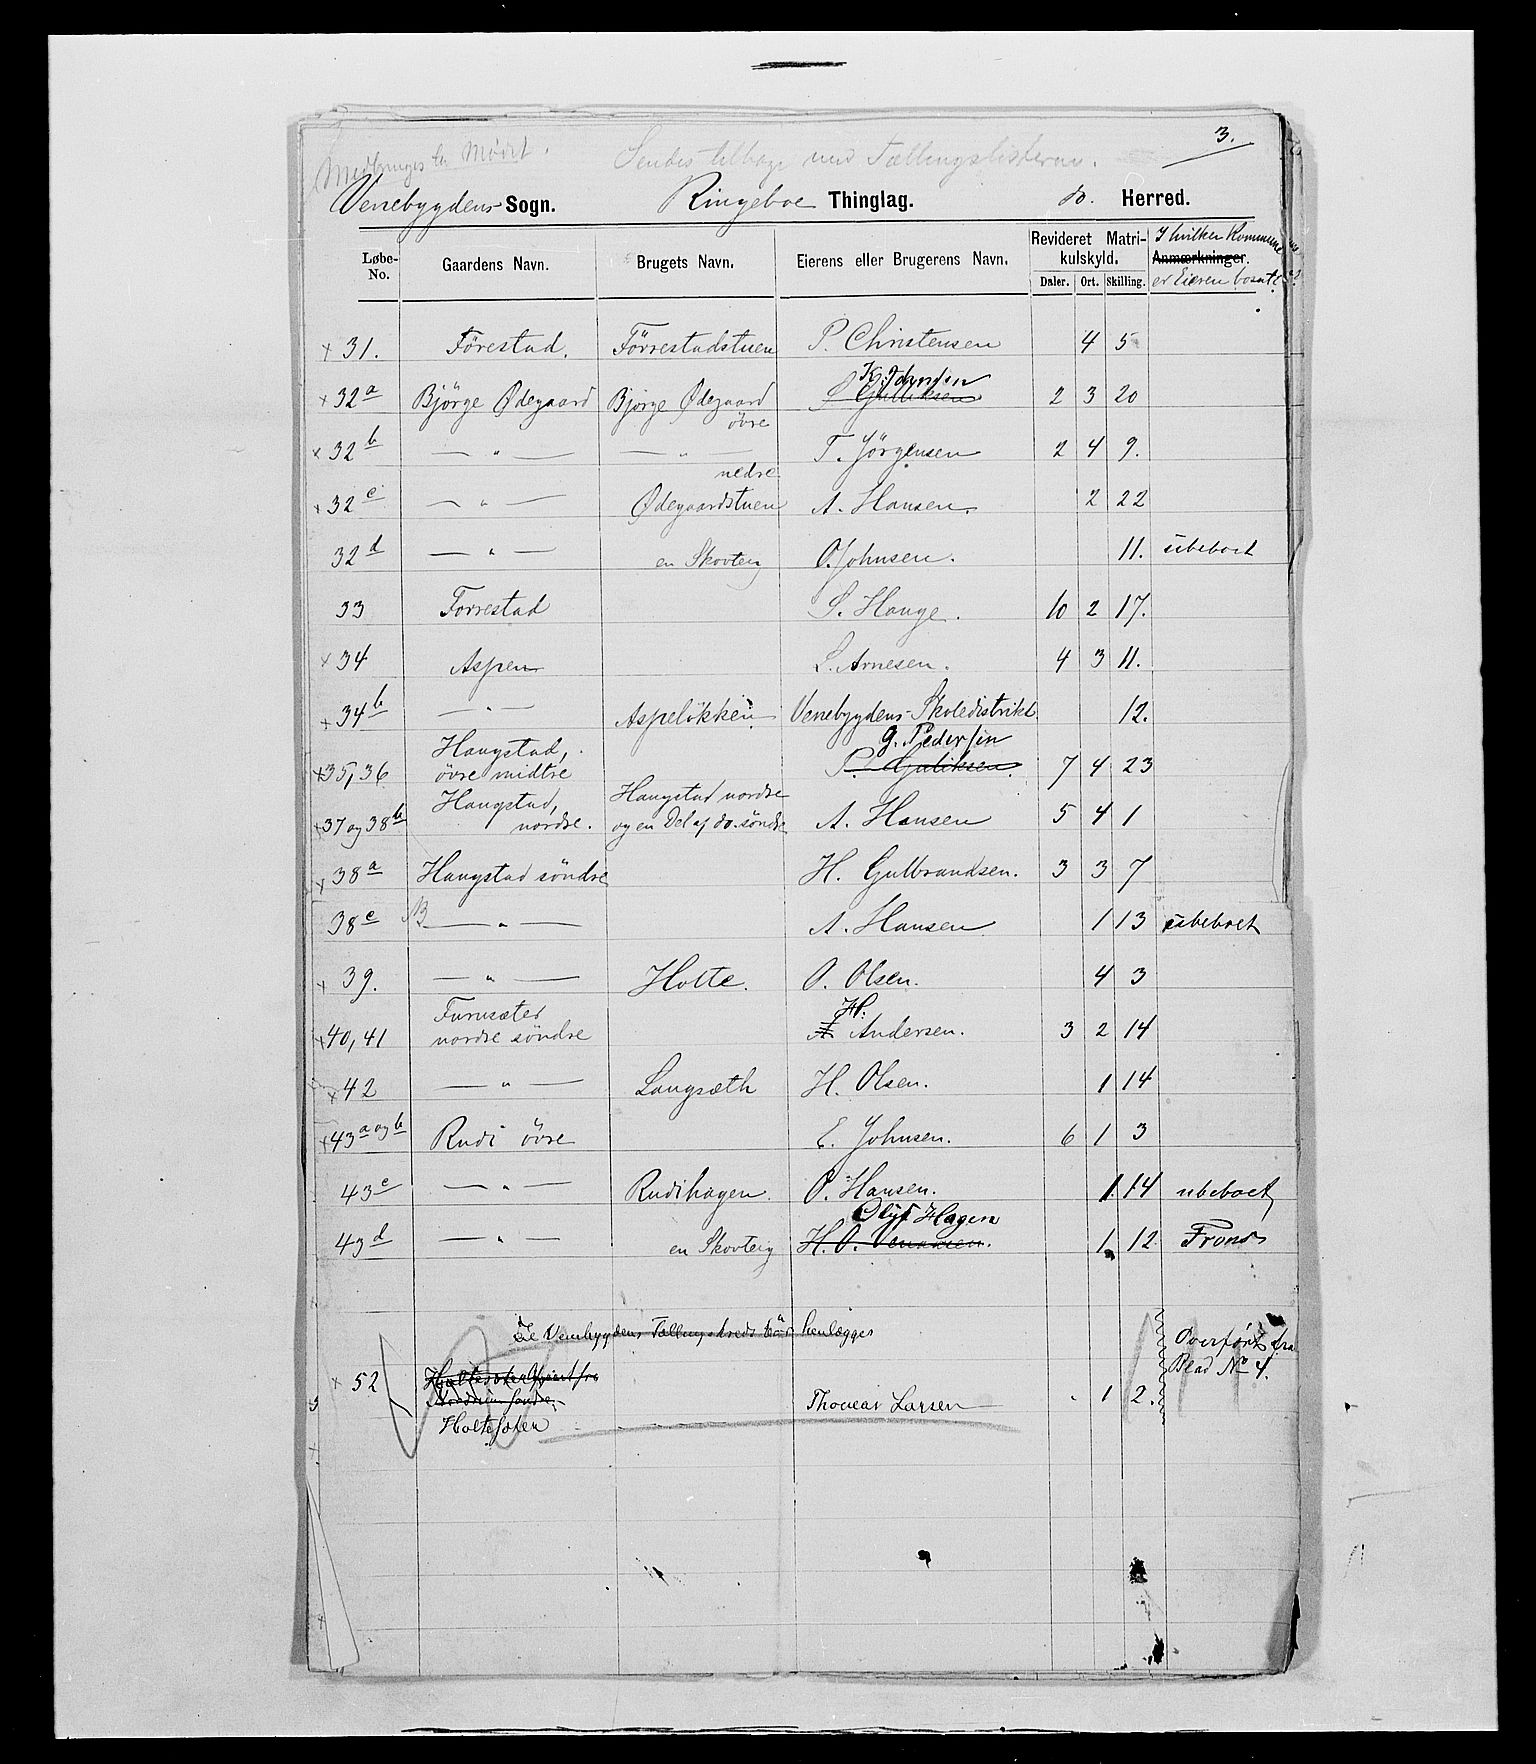 3.
Medbringes til Mødet. Sendes tilbage med Tællingslisterne.
Venebygdens Sogn. Ringeboe Thinglag. do. Herred.
Løbe-No. Gaardens Navn. Brugets Navn. Eierens eller Brugerens Navn. Revideret Matrikulskyld. Anmærkninger. I hvilken Kommune er Eieren bosat?
Daler. Ort. Skilling.
× 31. Förestad. Förrestadstuen P. Christensen 4 5
× 32a Björge Ødegaard Bjorge Ødegaard övre S. Gulliksen K. Johnsen 2 3 20
× 32b — " — — " — nedre T. Jörgensen 2 4 9.
× 32c — " — Ødegaardstuen A. Hansen. 2 22
32d — " — en Skovteig O. Johnsen. 11. ubeboet
33 Forrestad S. Hauge. 10 2 17.
× 34 Aspen L. Arnesen. 4 3 11.
× 34b — " — Aspelökken Venebygdens Skoledistrikt 12.
× 35, 36 Haugstad, övre midtre P. Guliksen. G. Pedersen 7 4 23
× 37 og 38b Haugstad, nordre. Haugstad nordre og en Del af do. söndre A. Hansen 5 4 1
× 38a Haugstad söndre H. Gulbrandsen. 3 3 7
38c NB — " — A. Hansen 1 13 ubeboet
× 39. — " — Holte. O. Olsen. 4 3
× 40, 41 Furusæter nordre söndre A. H. Andersen. 3 2 14
× 42 — " — Langsæth H. Olsen. 1 14
× 43a og b Rudi övre E. Johnsen. 6 1 3
43c — " — Rudihagen. O. Hansen. 1 14 ubeboet
43d — " — en Skovteig H. O. Venaasen. Oluf Hagen 1 12 Frons
Te Venebygdens Tællingskreds bör henlægges
× 52 Holtesæter Thomas Larsen 1 2. Overført fra Blad No 4.